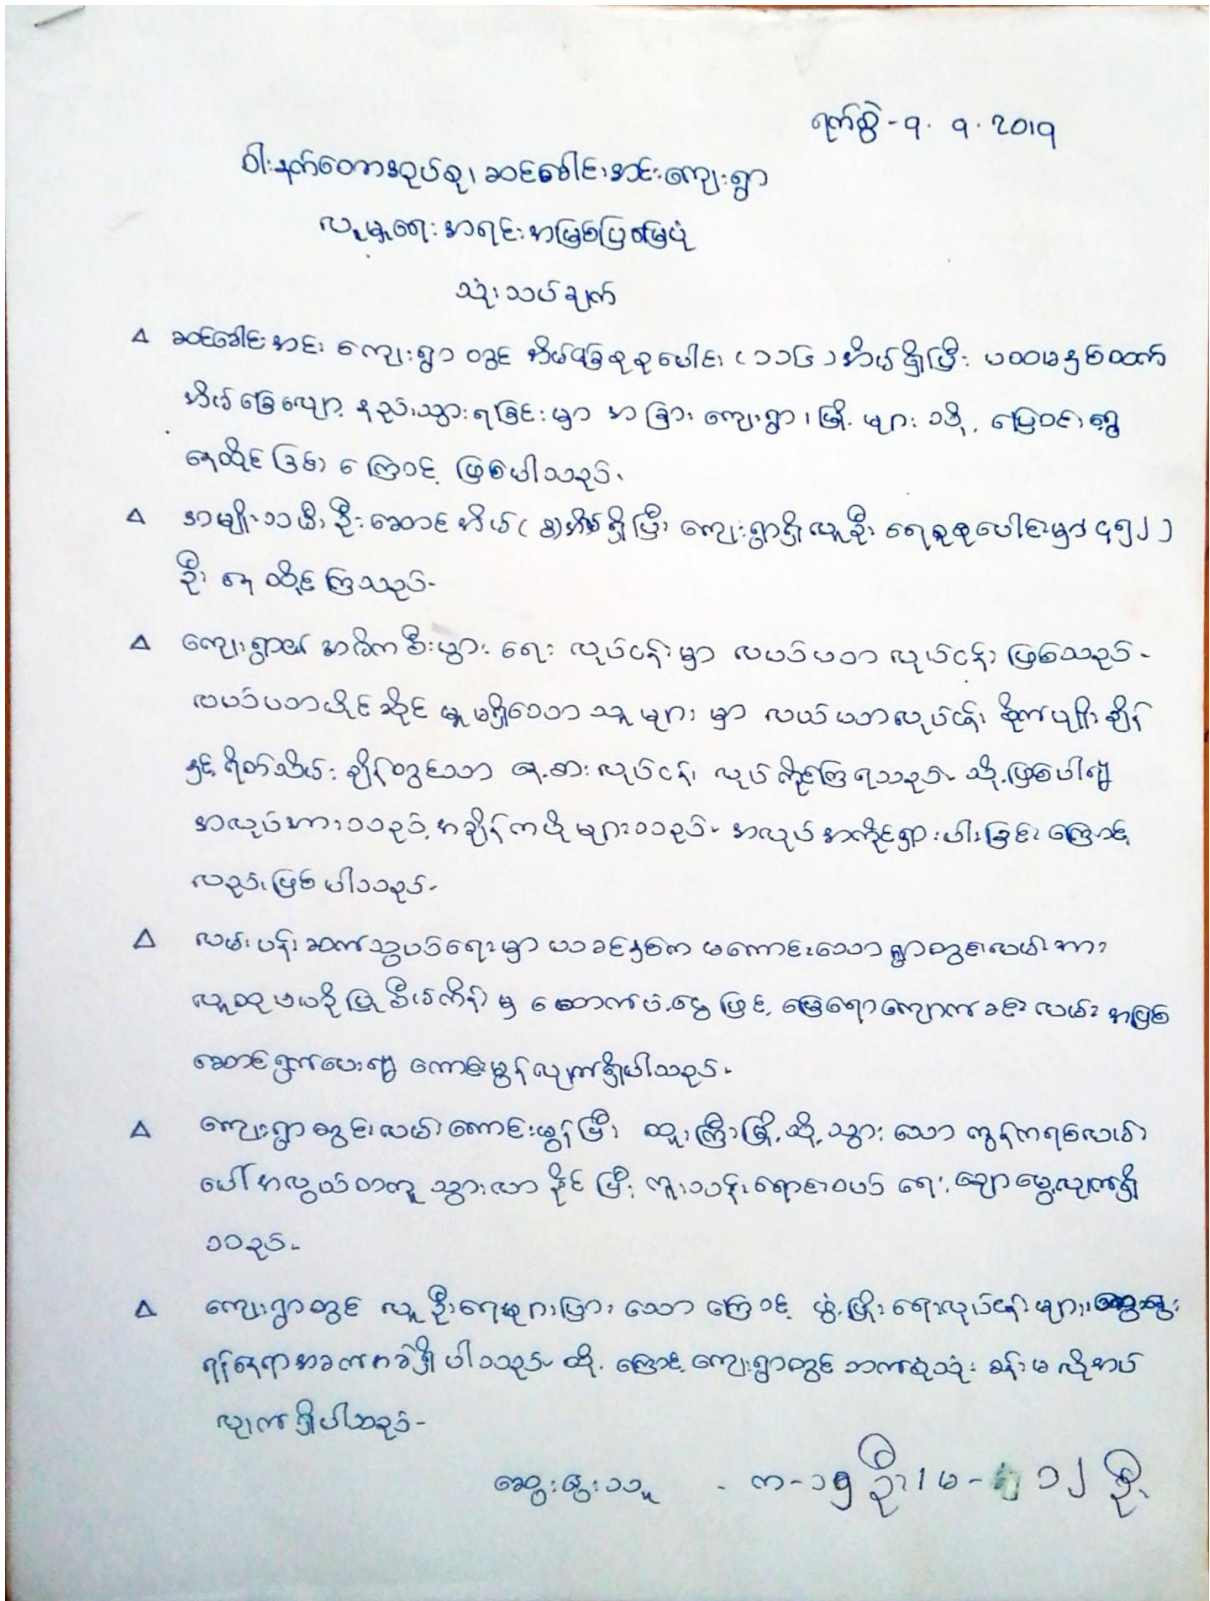 ရက်စွဲ - ၇. ၇. 2019
ဝါးနက်တောအုပ်စု၊ ဆင်ခေါင်းအင်းကျေးရွာ
လူမှုရေး အရင်းအမြစ်ပြမြေပုံ
သုံးသပ်ချက်
Δ ဆင်ခေါင်းအင်း ကျေးရွာ တွင် အိမ်ခြေစုစုပေါင်း (၁၁၆) အိမ်ရှိပြီး ပထမနှစ်ထက်
အိမ်ခြေလျော့နည်းသွားရခြင်းမှာ အခြား ကျေးရွာ၊ မြို့ များ သို့ ပြောင်းရွှေ့
နေထိုင်ခြင်း ကြောင့် ဖြစ်ပါသည်။
Δ အမျိုးသမီး ဦးဆောင်အိမ် (၃) အိမ်ရှိပြီး ကျေးရွာရှိလူဦး ရေစုစုပေါင်းမှာ ၄၅၂
ဦး နေ ထိုင်ကြသည်။
Δ ကျေးရွာ၏ အဓိကစီးပွား ရေး လုပ်ငန်းမှာ လယ်ယာ လုပ်ငန်း ဖြစ်သည်။
လယ်ယာပိုင်ဆိုင် မှုမရှိသော သူများ မှာ လယ်ယာလုပ်ငန်း စိုက်ပျိုးချိန်
နှင့် ရိတ်သိမ်းချိန်တွင်သာ နေ့စား လုပ်ငန်း လုပ်ကိုင်ကြရသည်။ သို့ဖြစ်ပါ၍
အလုပ်အားသည့် အချိန်ကပိုများသည်။ အလုပ်အကိုင်ရှားပါးခြင်း ကြောင့်
လည်းဖြစ်ပါသည်။
Δ လမ်းပန်းဆက်သွယ်ရေးမှာ ယခင်နှစ်က မကောင်းသော ရွာတွင်းလမ်းအား
လူထုဗဟိုပြုစီမံကိန်း မှ ထောက်ပံ့ငွေ ဖြင့် မြေရောကျောက်ခင်း လမ်း အဖြစ်
ဆောင်ရွက်ပေး၍ ကောင်းမွန်လျက်ရှိပါသည်။
Δ ကျေးရွာတွင်းလမ်းကောင်းမွန်ပြီး ထူးကြီးမြို့သို့ သွား သော ကွန်ကရစ်လမ်း
ပေါ် အလွယ်တကူ သွားလာ နိုင်ပြီး ကူးသန်းရောင်းဝယ် ရေး ချောမွေ့လျက်ရှိ
သည်။
Δ ကျေးရွာတွင် လူဦးရေများပြား သော ကြောင့် ဖွံ့ဖြိုးရေးလုပ်ငန်းများ ဆွေးနွေး
ရန်နေရာအခက်အခဲရှိပါသည်။ ထို့ကြောင့် ကျေးရွာတွင် ဘက်စုံသုံး ခန်းမ လိုအပ်
လျက်ရှိပါသည်။
ဆွေးနွေးသူ - က - ၁၅ ဦး၊ မ - ၁၂ ဦး